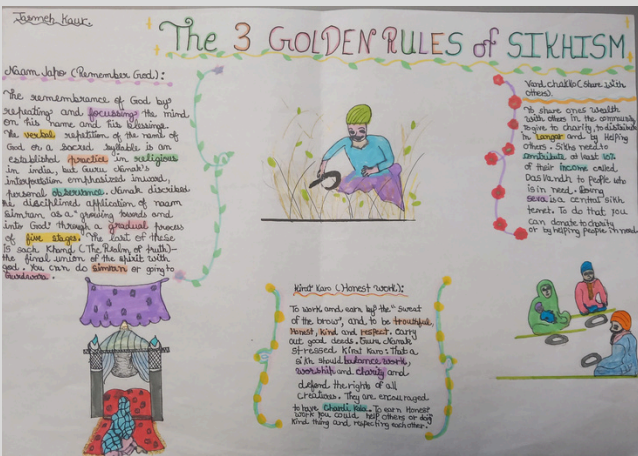 Jasmeh Kaur.
The 3 GOLDEN RULES of SIKHISM
Naam Japo (Remember God):
The remembrance of God by
repeating and focussing the mind
on his name and his blessings.
The verbal repetition of the name of
God or a sacred syllable is an
established practice in religious
in india, but Guru Nanak's
interpretation emphasized inward,
personal observance. Nanak discribed
the disciplined application of naam
simram as a "growing towards and
into God" through a gradual process
of five stages. The last of these
is sach Khand (The Realm of truth)-
the final union of the spirit with
god. You can do simran or going to
Gurdwara.
Kirat Karo (Honest Work):
To work and earn by the "sweat
of the brow", and to be trouthful,
Honest, kind and respect. Carry
out good deeds. Guru Nanak
stressed Kirat Karo: That a
sikh should balance work,
worship and charity and
defend the rights of all
creatures. They are encouraged
to have Chardi Kala. To earn Honest
work you could help others or doing
kind thing and respecting each other.
Vand Chakko (Share with
others).
To share ones wealth
with others in the community
to give to charity, to distribute
in Langar and by helping
others. Sikhs need to
contribute at least 10%
of their income called
Dasvandh to people who
is in need. Doing
seva is a central sikh
tenet. To do that you
can donate to charity
or by helping people in need.